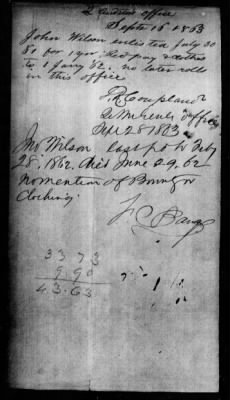 2 Auditors office
Septr 15 1863
John Wilson enlisted July 30
61 for 1 year. Led pay & clothes
to 1 Jany 62. no later rolls
in this office
J R Coupland
2 Auditors Office
Sept 28 1863
Jno Wilson last pd to Feby
28, 1862. Died June 29. 62
no mention of Bounty or
Clothing.
33 73
9 90
43.63